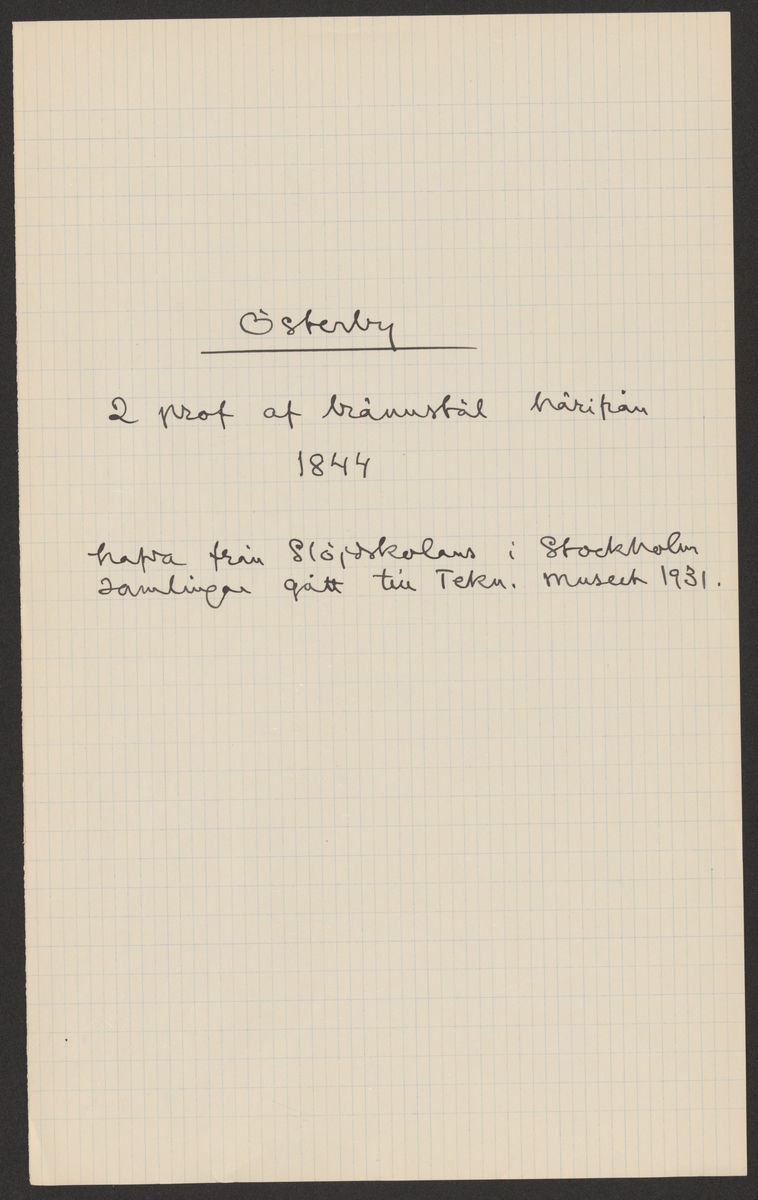 Österby
2 prof af brännstål härifrån
1844
hafva från Slöjdskolans i Stockholm
samlingar gått till Tekn. Museet 1931.